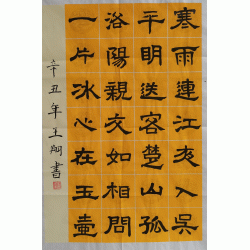 寒雨連江夜入吳
平明送客楚山孤
洛陽親友如相問
一片冰心在玉壺
辛丑年王書